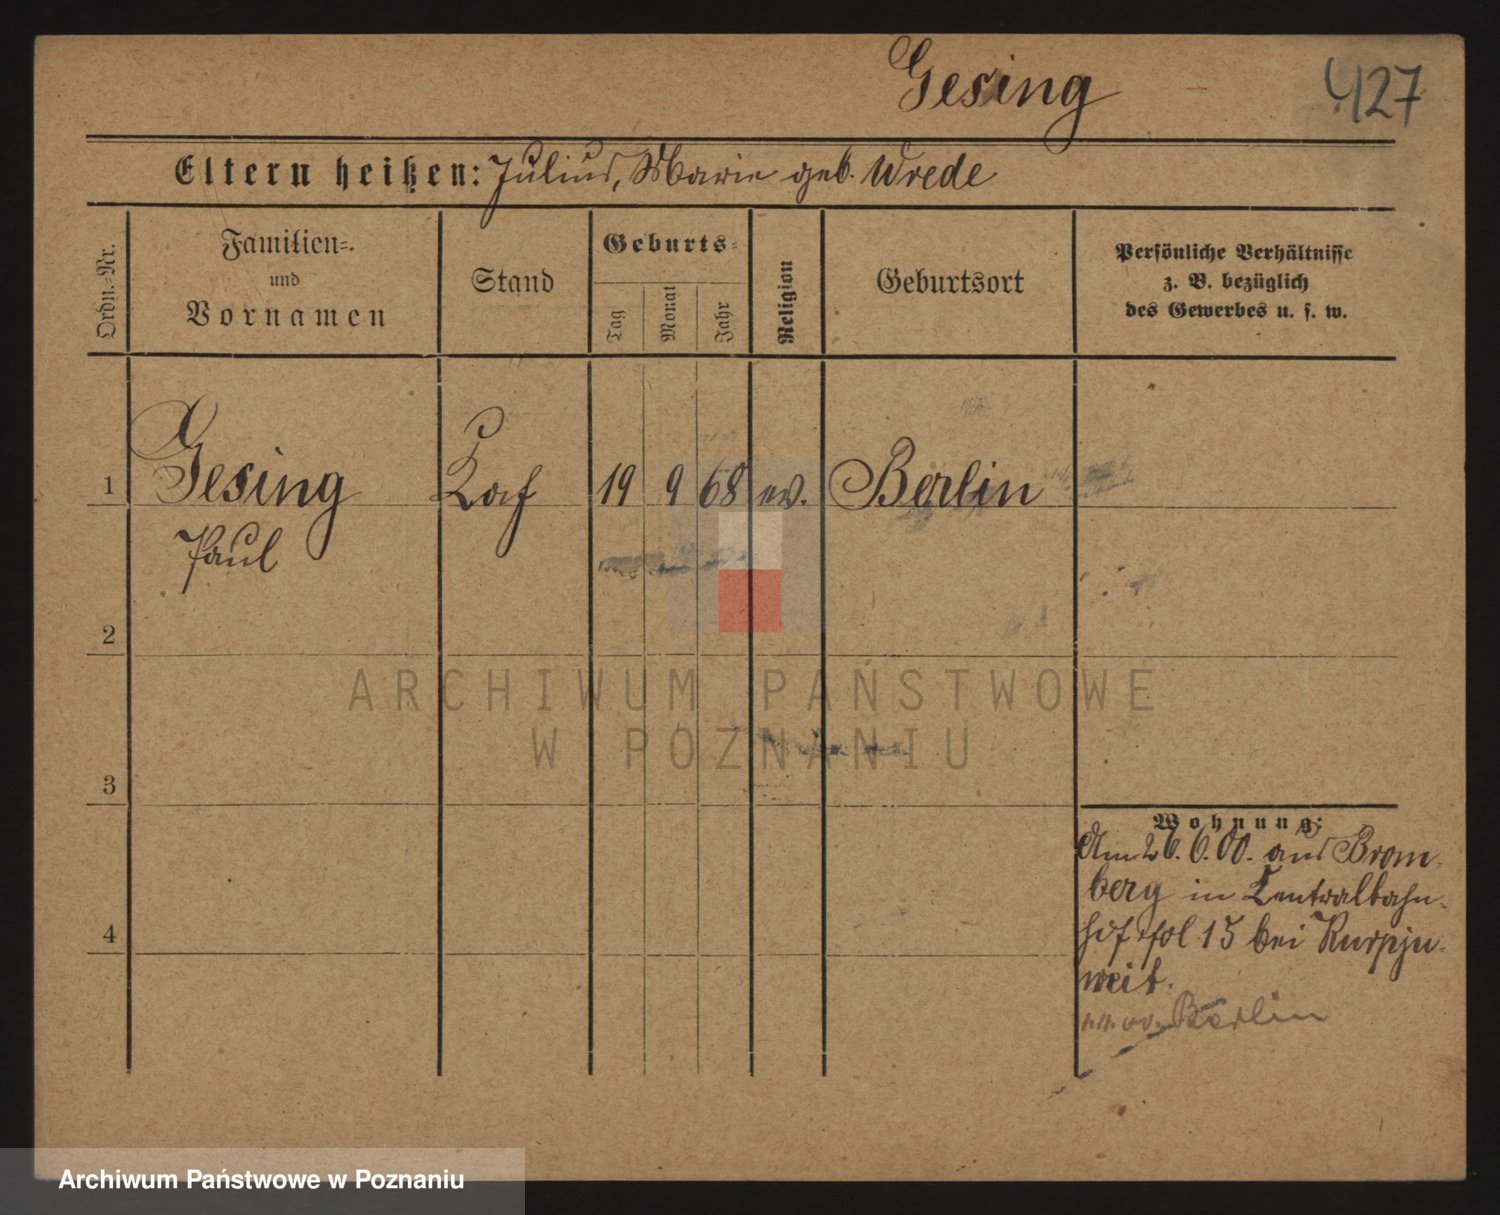 Gesing
427
Eltern heißen: Julius, Marie geb. Wrede
Ordn.-Nr.
Familien-
und
Vornamen
Stand
Geburts-
Tag
Monat
Jahr
Religion
Geburtsort
Persönliche Verhältnisse
z. B. bezüglich
des Gewerbes u. s. w.
1 Gesing 19 9 68 ev. Berlin
Paul
2
3
4
ARCHIWUM PAŃSTWOWE
W POZNANIU
Wohnung:
Am 26.6.00. aus Brom-
berg in Centralbahn-
hof fol 15 bei
weit.
Berlin
Archiwum Państwowe w Poznaniu